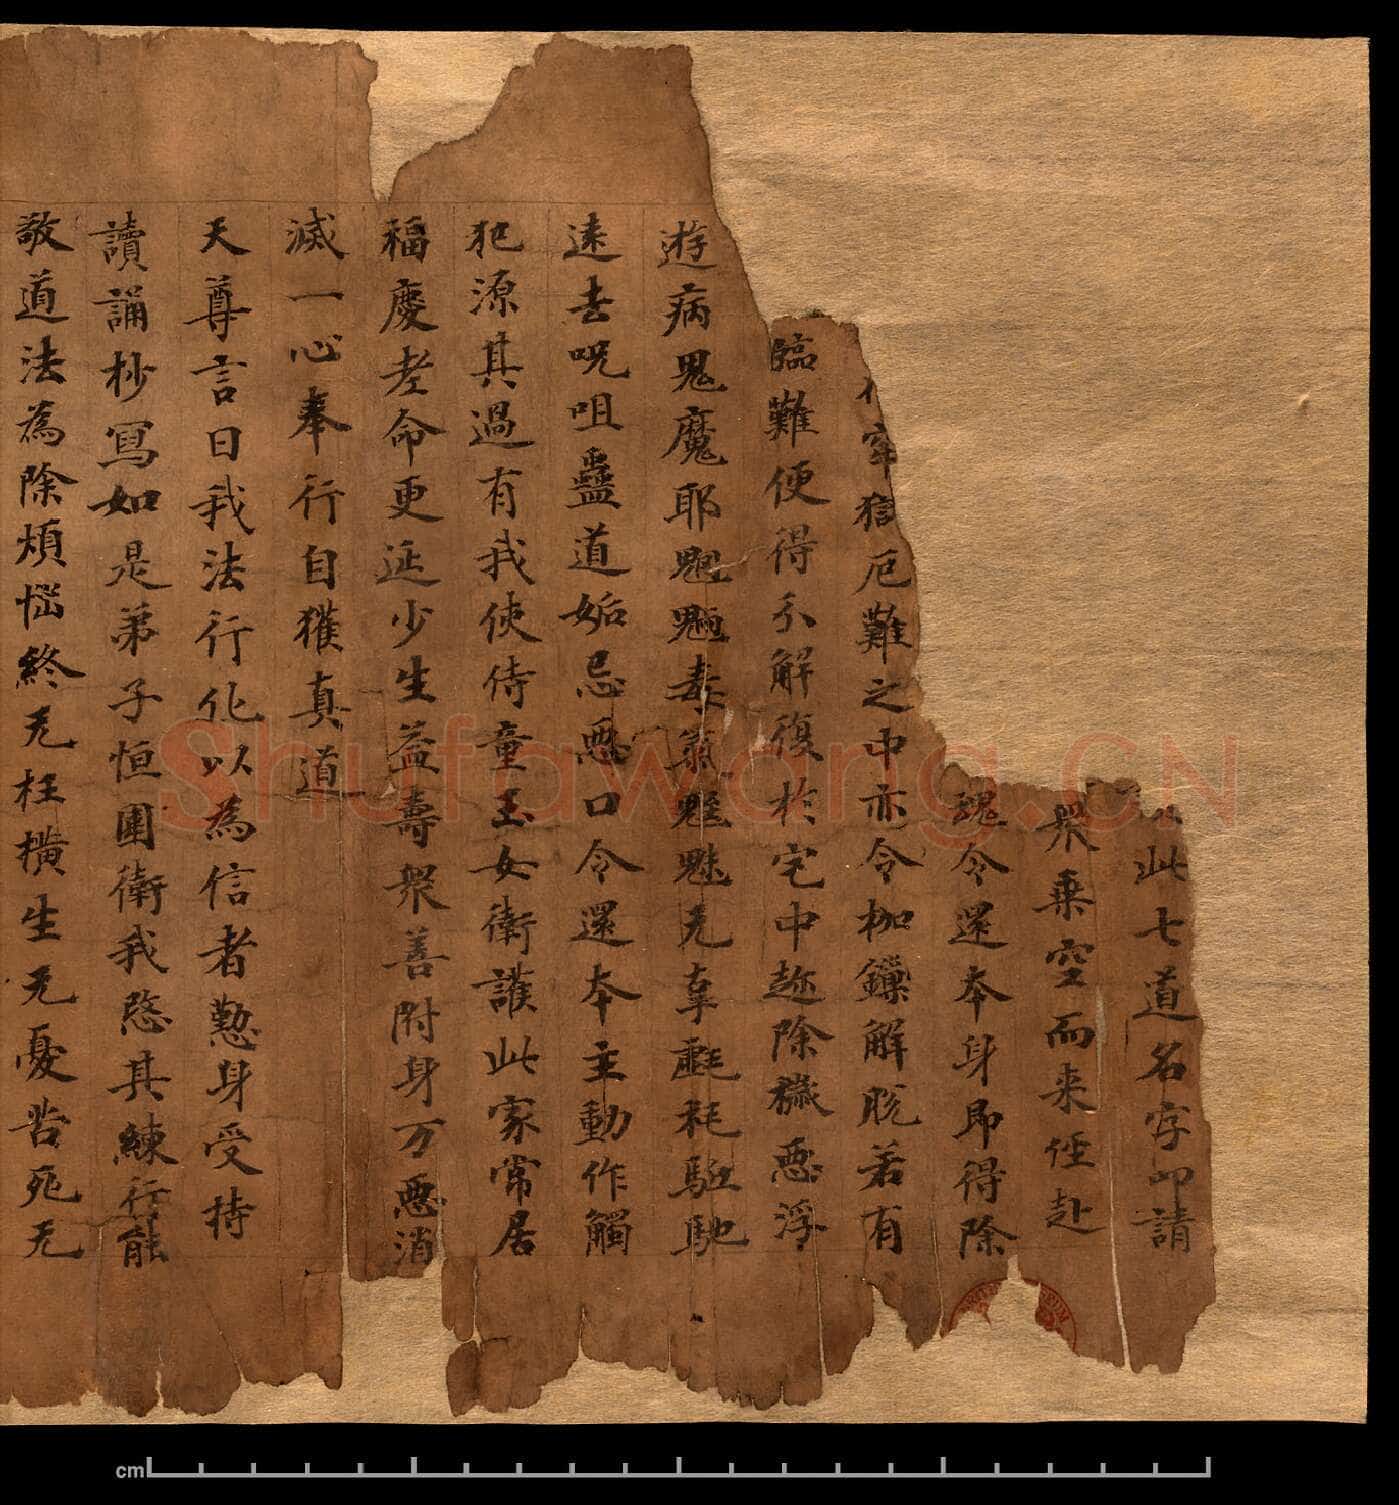 此七道名字即請
衆乗空而来侄赴
魂令還本身即得除
牢獄厄難之中亦令枷鏁解脫若有
臨難便得永解復於宅中趂除穢惡浮
遊病鬼魔耶魍魎毒氣魑魅无辜虚耗駈馳
逺去呪咀蠱道妬忌惡口令還本主動作觸
犯源其過有我使侍童玉女衛護此家常居
福慶孝命更延少生益壽衆善附身万惡消
滅一心奉行自獲真道
天尊言曰我法行化以為信者懃身受持
讀誦抄寫如是弟子恒圍衛我愍其練行能
敬道法為除煩惱終无枉橫生无憂苦死无
Shufawang.CN
cm